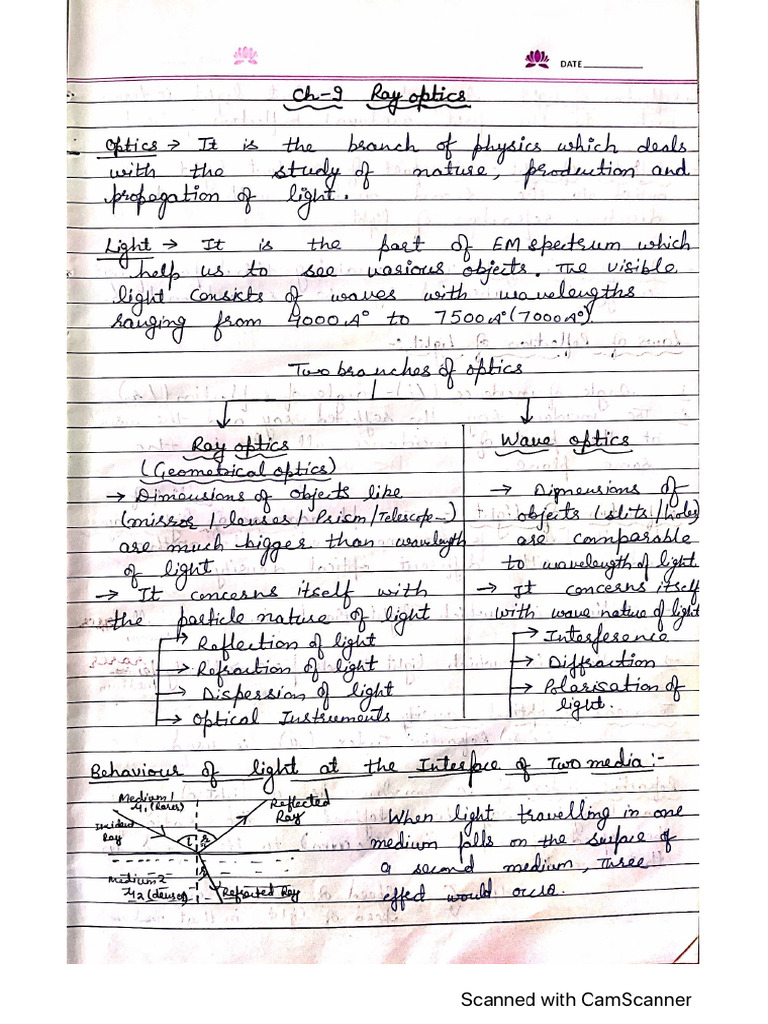 DATE
Ch-9 Ray optics
Optics → It is the branch of physics which deals
with the study of nature, production and
propagation of light.
Light → It is the part of EM spectrum which
help us to see various objects. The visible
light consists of waves with wavelengths
ranging from 4000A° to 7500A°(7000A°).
Two branches of optics
Ray optics
(Geometrical optics)
→ Dimensions of objects like
(mirror / lenses / Prism / Telescope-)
are much bigger than wavelength
of light
→ It concerns itself with
the particle nature of light
→ Reflection of light
→ Refraction of light
→ Dispession of light
→ Optical Instruments
Wave optics
→ Dimensions of
objects (slits / holes)
are comparable
to wavelength of light.
→ It concerns itself
with wave nature of light
→ Interference
→ Diffraction
→ Polarisation of
light.
Behaviour of light at the Interface of Two media:-
Medium 1
μ1 (Rarer)
Incident
Ray
Reflected
Ray
i r
r
Medium 2
μ2 (denser)
Refracted Ray
When light travelling in one
medium falls on the surface of
a second medium, three
effect would occur.
Scanned with CamScanner